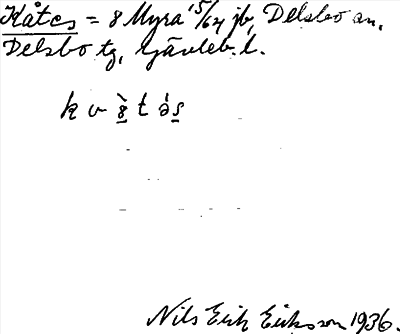 Kåtes = 8 Myra 15/64 jb, Delsbo sn,
Delsbo tg, Gävleb. l.
k v 8̀ t ə́ s
Nils Erik Eriksson 1936.